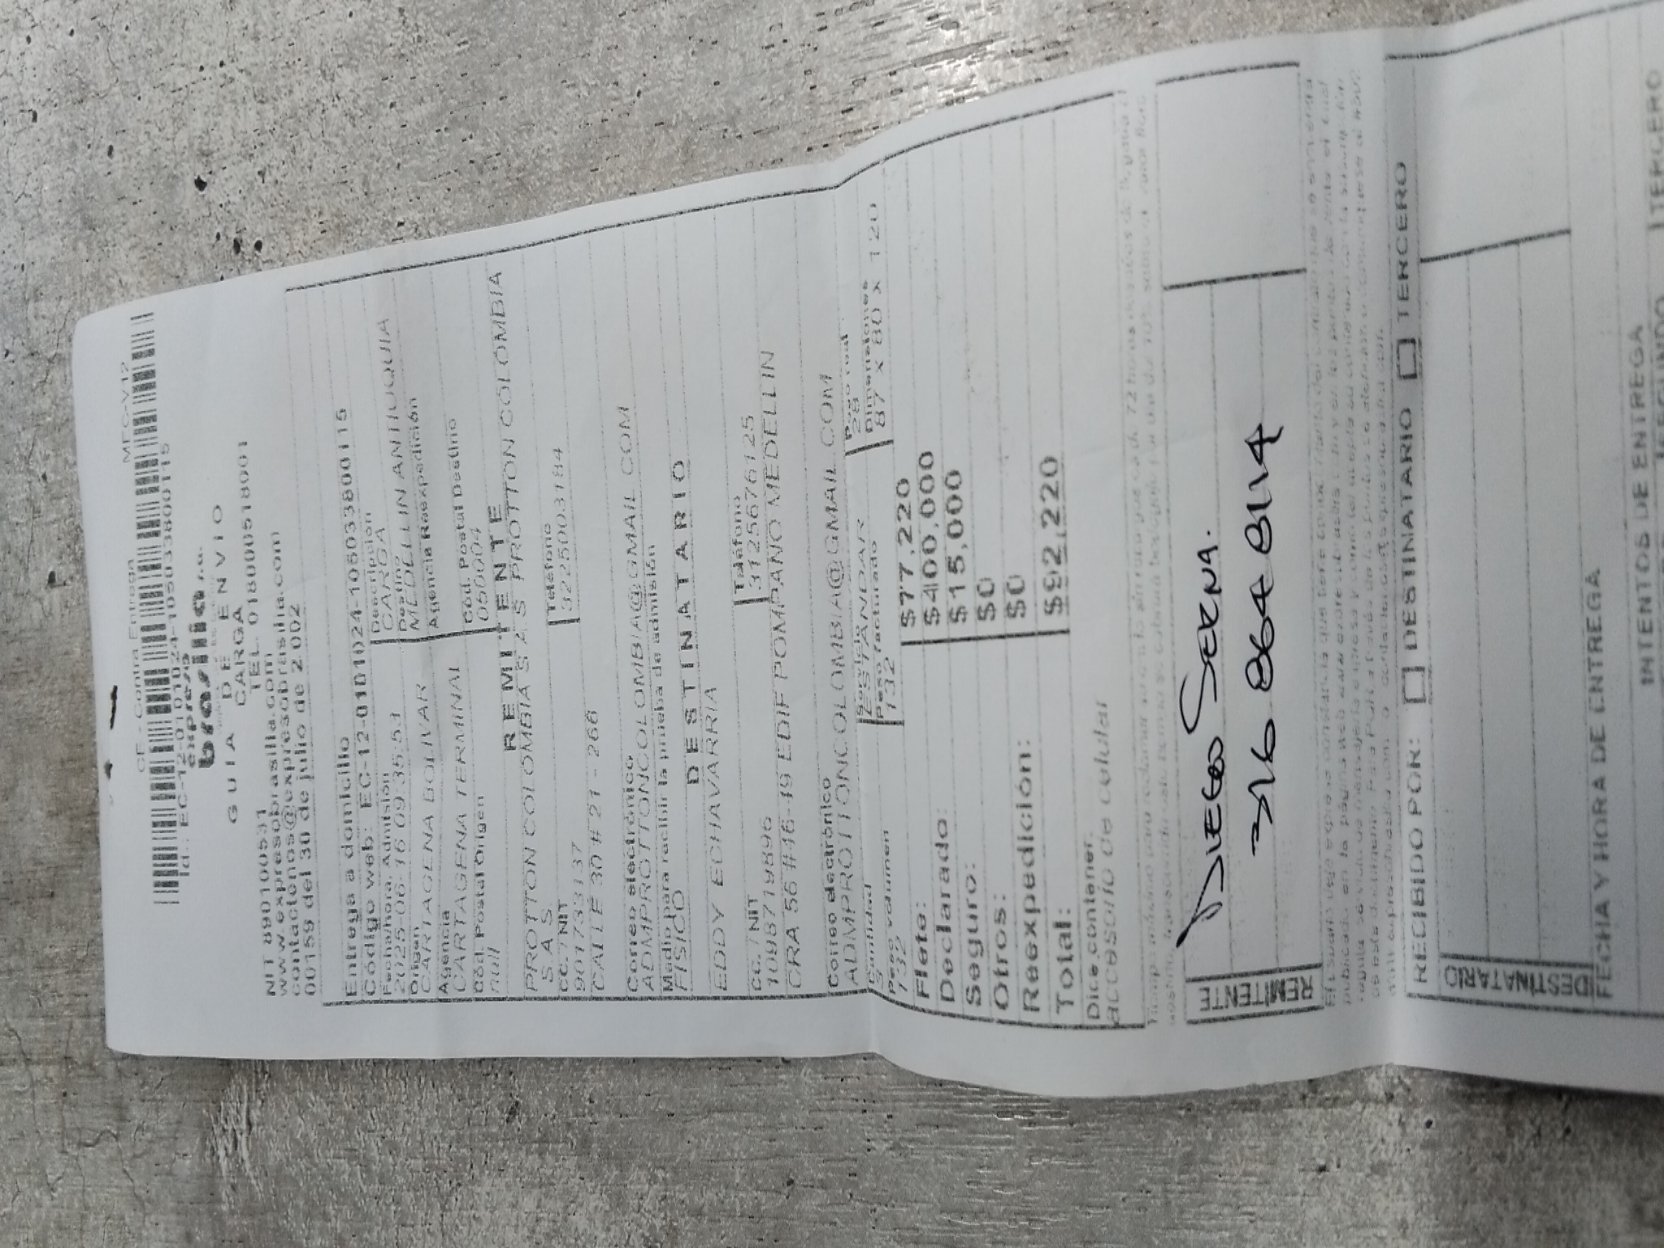 CE - Contra Entrega MFC-V12
Id.: EC-12-0101024-1050338000115
expreso
brasilia s.a.
GUIA DE ENVIO
CARGA
TEL. 018000518001
NIT 890100531
www.expresobrasilia.com
contactenos@expresobrasilia.com
00159 del 30 de julio de 2002
Entrega a domicilio
Código web: EC-12-0101024-1050338000115
Fecha/hora. Admisión Descripción
2025-06-16 09:35:53 CARGA
Origen Destino
CARTAGENA BOLIVAR MEDELLIN ANTIOQUIA
Agencia Agencia Reexpedición
CARTAGENA TERMINAL
Cód. Postal Origen Cód. Postal Destino
null 050004
REMITENTE
PROTTON COLOMBIA S A S PROTTON COLOMBIA
S A S
CC. / NIT Teléfono
901733137 3225003184
CALLE 30 # 21 - 266
Correo electrónico
ADMPROTTONCOLOMBIA@GMAIL.COM
Medio para recibir la prueba de admisión
FISICO
DESTINATARIO
EDDY ECHAVARRIA
CC. / NIT Teléfono
1098719896 3125676125
CRA 56 #16-19 EDIF POMPANO MEDELLIN
Correo electrónico
ADMPROTTONCOLOMBIA@GMAIL.COM
Cantidad Servicio Peso real
ESTANDAR 28
Peso volumen Peso facturado Dimensiones
132 132 87 X 80 X 120
Flete: $77,220
Declarado: $400,000
Seguro: $15,000
Otros: $0
Reexpedición: $0
Total: $92,220
Dice contener:
accesorio de celular
REMITENTE
DIEGO SERNA.
316 864 8114
RECIBIDO POR: DESTINATARIO TERCERO
DESTINATARIO
FECHA Y HORA DE ENTREGA
INTENTOS DE ENTREGA
SEGUNDO TERCERO